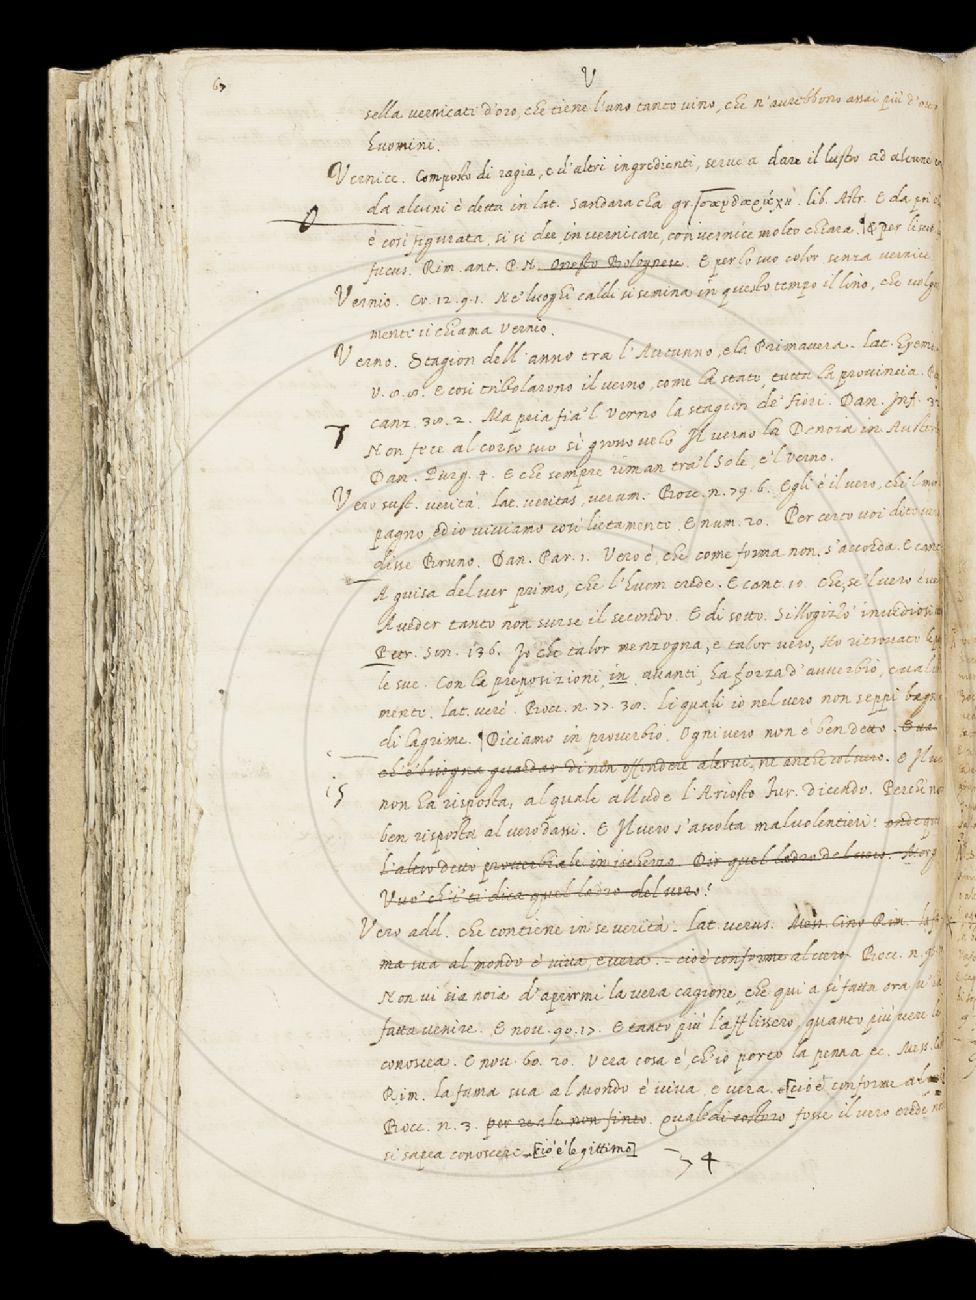 67
V
sella vernicati d'oro, che tiene l'uno tanto vino, che n'avrebbono assai più d'otto
huomini.
Vernice. Composto di ragia, e d'altri ingredienti, serve a dare il lustro ad alcune
da alcuni è detta in lat. Sandaracha gr. lib. Astr. E da poi
è così figurata, si si dee invernicare, con vernice molto chiara. per liscio
fucus. Rim. ant. P. N. Onesto Bolognese. E per lo suo color senza vernice
Vernio. Cr. 12. 9. 1. Ne' luoghi caldi si semina in questo tempo il lino, che volgar
mente si chiama vernio.
Verno. Stagion dell'anno tra l'Autunno, e la Primavera. lat. Hyems
E così tribolarono il verno, come la state, tutta la provincia.
canz. 38. 2. Ma peia fia'l verno la stagion de' fiori. Dan. Inf. 32
7
Non fece al corso suo sì grosso velo Il verno la Danoia in
Dan. Purg. 4. E che sempre riman tra'l Sole, e'l verno.
Vero sust. verità. lat. veritas, verum. Bocc. n. 79. 6. Egli è il vero, che'l mio
pagno, ed io viviamo così lietamente. E num. 20. Per certo voi dite vero
disse Bruno. Dan. Par. 1. Vero è, che come forma non s'accorda. E cant
A guisa del ver primo, che l'huom crede. E cant. 10. che, se'l vero è ve
A veder tanto non surse il secondo. E di sotto. Sillogizzò invidiosi
Petr. Son. 136. Io che talor menzogna, e talor vero, Ho ritrovato le
le sue. Con la preposizioni, in avanti, ha forza d'avverbio, e val
mente. lat. verè. Bocc. n. 77. 38. li quali io nel vero non seppi bagn
di lagrime. Diciamo in proverbio. Ogni vero non è ben detto. E va
ed è bisogna guardar di non offendere altrui, ne anche col vero. e Il ve
15
non ha risposta, al quale allude l'Ariosto Fur. dicendo. Perchè n
ben risposta al vero dassi. E Il vero s'ascolta malvolentieri: onde
L'altro detto proverbiale in ischerzo. Dir quel ladro del vero. Morg
Vuo' ch'i' ti dica quel ladro del vero!
Vero add. che contiene in se verità. lat. verus. Mess. Cino Rim. la fa
ma sua al mondo è viva, e vera. cioè conforme al vero. Bocc. n.
Non vi sia noia d'aprirmi la vera cagione, che qui a sì fatta ora v'ha
fatta venire. E nov. 90. 17. E tanto più l'afflissero, quanto più vere le
conoscea. E nov. 60. 20. Vera cosa è, ch'io porto la penna ec. Mess.
Rim. la fama sua al Mondo è viva, e vera. [cioè conforme al
Bocc. n. 3. per reale non finto. Qual di costoro fosse il vero erede
si sapea conoscere. [cio è legittimo]
4